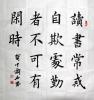 讀書常戒
自欺處勤
者不可有
閑時